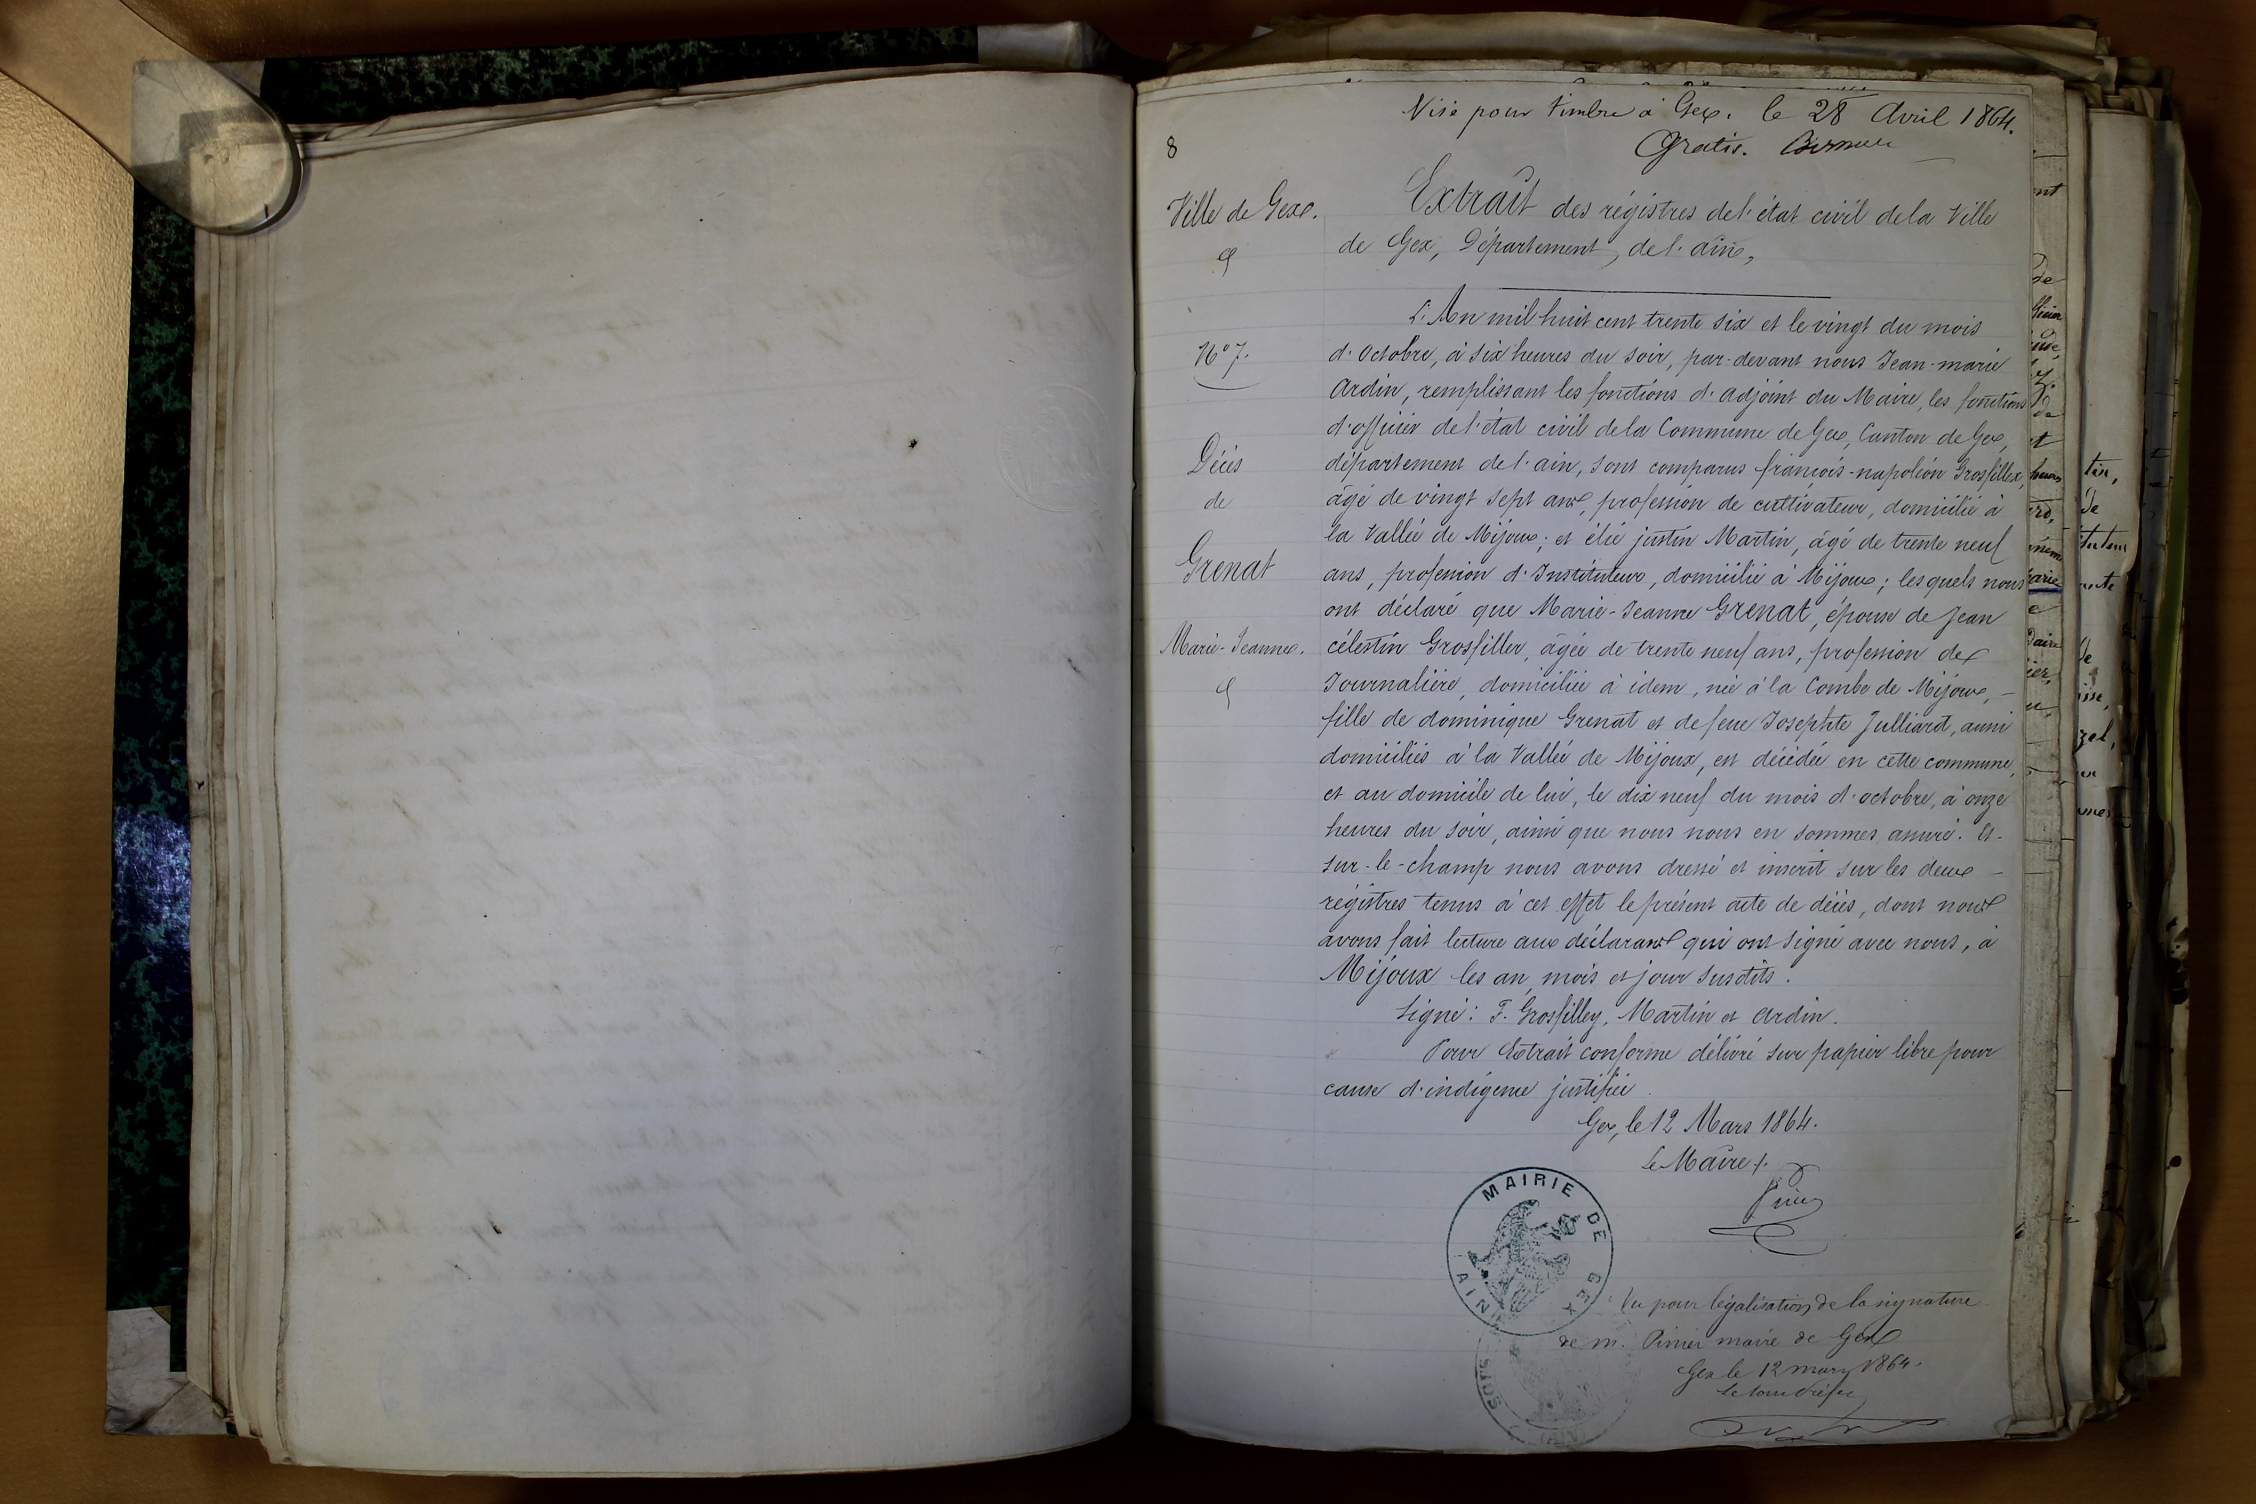 Visé pour timbre à Gex. le 28 Avril 1864.
Gratis.
8
Ville de Gex.
Extrait des régistres de l'état civil de la Ville
de Gex, Département, de l'ain,
N° 7.
Décès
de
Grenat
Marie-Jeanne.
L'An mil huit cent trente six et le vingt du mois
d'octobre, à six heures du soir, par-devant nous Jean-marie
Ardin, remplissant les fonctions d'adjoint du Maire, les fonctions
d'officier de l'état civil de la Commune de Gex, Canton de Gex,
département de l'ain, sont comparus françois-napoléon Grosfillex,
âgé de vingt sept ans, profession de cultivateur, domicilié à
la Vallée de Mijoux; et élié justin Martin, âgé de trente neuf
ans, profession d'Instituteur, domicilié à Mijoux; lesquels nous
ont déclaré que Marie-Jeanne Grenat, épouse de Jean
célestin Grosfiller, âgée de trente neuf ans, profession de
Journalière, domiciliée à idem, née à la Combe de Mijoux, -
fille de dominique Grenat et de feue Josephte Julliard, aussi
domiciliés à la Vallée de Mijoux, est décédée en cette commune,
et au domicile de lui, le dix neuf du mois d'octobre, à onze
heures du soir, ainsi que nous nous en sommes assuré. Et -
sur-le-champ nous avons dressé et inscrit sur les deux -
régistres tenus à cet effet le présent acte de décès, dont nous
avons fait lecture aux déclarants qui ont signé avec nous, à
Mijoux les an, mois et jour susdits.
Signé: F. Grosfilley, Martin et Ardin.
Pour Extrait conforme délivré sur papier libre pour
cause d'indigence justifiée
Gex, le 12 Mars 1864.
Le Maire,
MAIRIE DE GEX
AIN
Vu pour légalisation de la signature
de m. maire de Gex
Gex le 12 mars 1864.
Le sous Préfet
SOUS
(AIN)